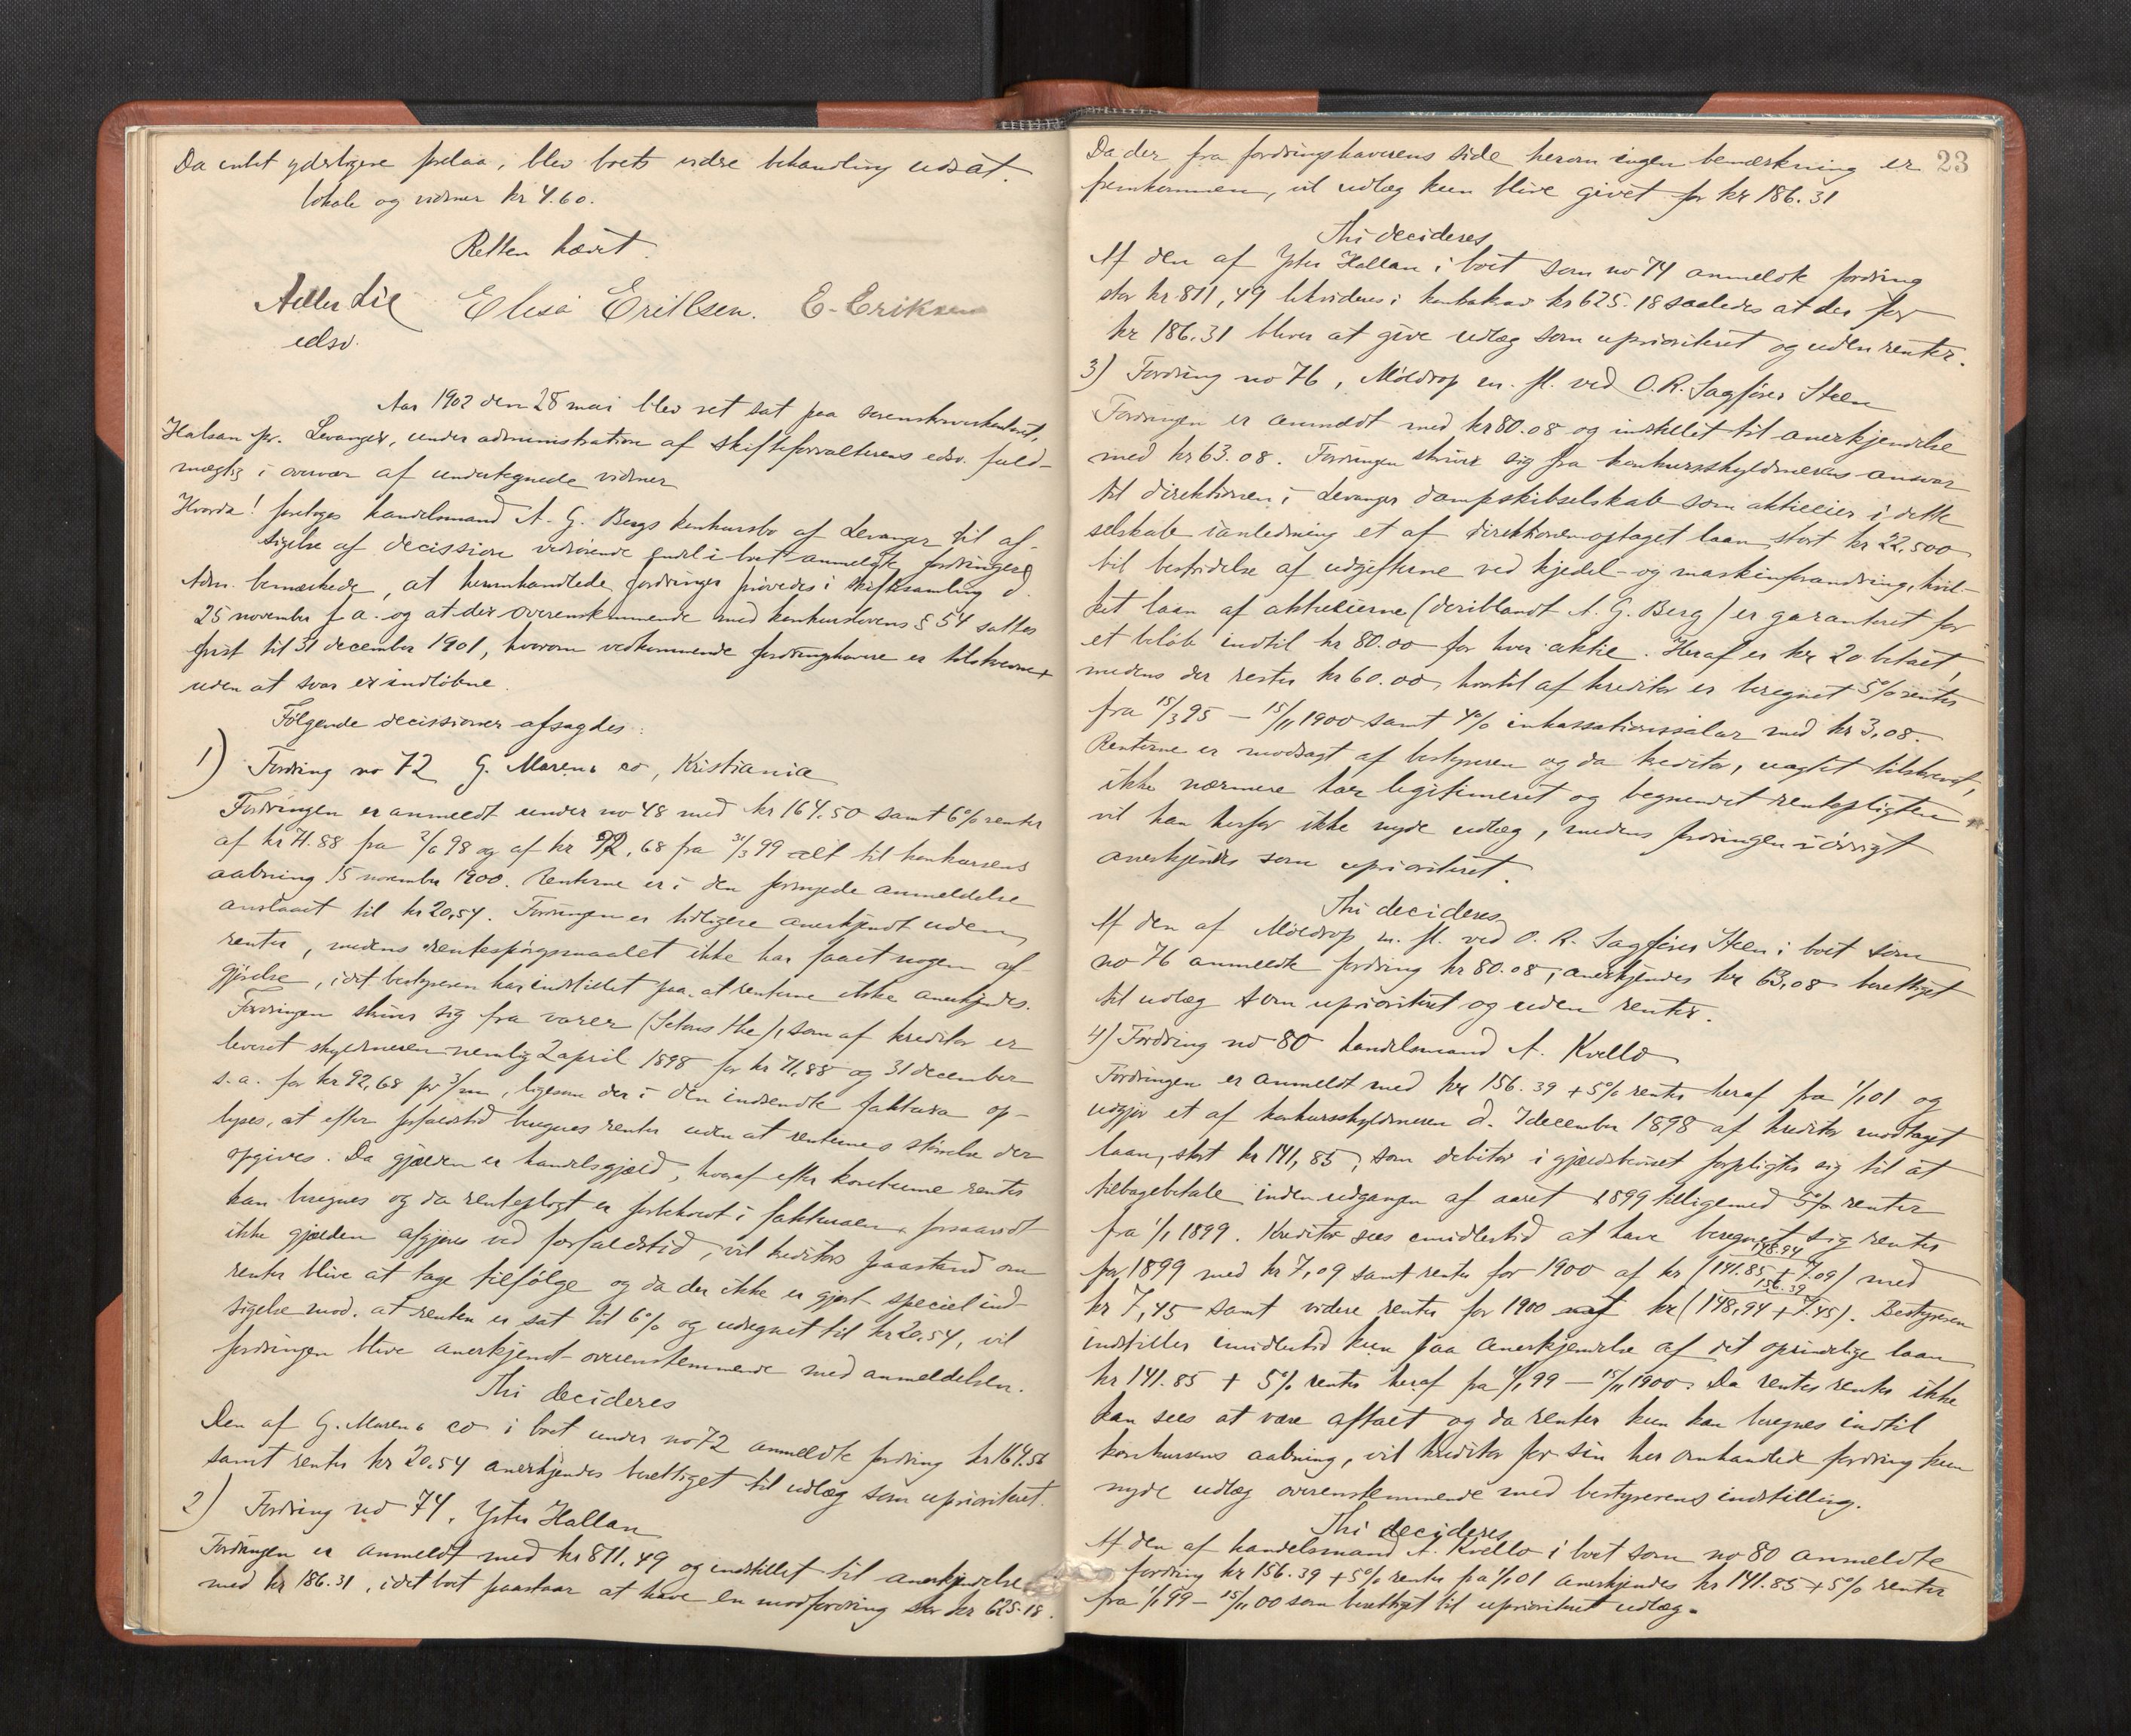 Da intet yderligere forelaa, blev boets videre behandling udsat.
lokale og vidner kr 4.60.
Retten hævet.
Lie Elesa Erillsen. E. Eriksen
edsv.
Aar 1902 den 28 mai blev ret sat paa sorenskriverkontoret,
Halsan pr. Levanger, under administration af skifteforvalterens edsv. fuld-
mægtig i overvær af undertegnede vidner
Hvorda! foretoges handelsmand A. G. Bergs konkursbo af Levanger til af-
sigelse af decission vedrørende endel i boet anmeldte fordringer.
Adm. bemærkede, at heromhandlede fordringer prøvedes i skiftesamling d.
25 november f. a. og at der overensstemmende med konkurslovens § 54 sattes
frist til 31 december 1901, hvorom vedkommende fordringshavere er tilskrevne
uden at svar er indløbne.
Følgende decissioner afsagdes:
1) Fordring no 72 G. Maren & co, Kristiania
Fordringen er anmeldt under no 48 med kr 164.50 samt 6% renter
af kr 71.88 fra 2/6 98 og af kr 92,68 fra 31/3 99 alt til konkursens
aabning 15 november 1900. Renterne er i den fornyede anmeldelse
anslaaet til kr 20,54. Fordringen er tidligere anerkjendt uden
renter, medens rentespørgsmaalet ikke har faaet nogen af-
gjørelse, idet bestyreren har indstillet paa at renterne ikke anerkjendes.
Fordringen skriver sig fra varer (Setons the), som af kreditor er
leveret skyldneren nemlig 2 april 1898 for kr 71,88 og 31 december
s. a. for kr 92,68 pr 3/mn, ligesom der i den indsendte faktura op-
lyses, at efter forfaldstid beregnes renter uden at renternes størrelse der
opgives. Da gjælden er handelsgjæld, hvoraf efter koutume renter
kan beregnes og da rentepligt er forbeholdt i fakturaen, forsaavidt
ikke gjælden afgjøres ved forfaldstid, vil kreditors paastand om
renter blive at tage tilfølge og da der ikke er gjort speciel ind-
sigelse mod, at renten er sat til 6% og udregnet til kr 20,54, vil
fordringen blive anerkjendt overensstemmende med anmeldelsen.
Thi decideres
Den af G. Maren & co i boet under no 72 anmeldte fordring kr 164.56
samt renter kr 20.54 anerkjendes berettiget til udlæg som uprioriteret.
2) Fordring no 74, Yster Hallan
Fordringen er anmeldt med kr 811.49 og indstillet til anerkjendelse
med kr 186.31, idet boet paastaar at have en modfordring stor kr 625.18.
23
Da der fra fordringshaverens side herom ingen bemærkning er
fremkommen, vil udlæg kun blive givet for kr 186.31
Thi decideres
Af den af Yster Hallan i boet som no 74 anmeldte fordring
stor kr 811,49 likvideres i kontrakrav kr 625.18 saaledes at der for
kr 186.31 bliver at give udlæg som uprioriteret og uden renter.
3) Fordring no 76, Møldrop m. fl. ved O. R. Sagfører Steen
Fordringen er anmeldt med kr 80.08 og indstillet til anerkjendelse
med kr 63.08. Fordringen skriver sig fra konkursskyldnerens ansvar
til direktionen i Levanger dampskibsselskab som aktieeier i dette
selskab ianledning et af direktionen optaget laan, stort kr 22,500
til bestridelse af udgifterne ved kjedel- og maskinforandring, hvil-
ket laan af aktieeierne (deriblandt A. G. Berg) er garanteret for
et beløb indtil kr 80.00 for hver aktie. Heraf er kr 20 betalt,
medens der rester kr 60.00, hvortil af kreditor er beregnet 5% renter
fra 15/3 95 – 15/11 1900 samt 4% inkassationssalar med kr 3,08.
Renterne er modsagt af bestyreren og da kreditor, uagtet tilskrevet,
ikke nærmere har legitimeret og begrundet rentepligten,
vil han herfor ikke nyde udlæg, medens fordringen iøvrigt
anerkjendes som uprioriteret.
Thi decideres
Af den af Møldrop m. fl. ved O. R. Sagfører Steen i boet som
no 76 anmeldte fordring kr 80.08, anerkjendes kr 63,08 berettiget
til udlæg som uprioriteret og uden renter.
4) Fordring no 80 handelsmand A. Kvello
Fordringen er anmeldt med kr 156.39 + 5% renter heraf fra 1/1 01 og
udgjør et af konkursskyldneren d. 7 december 1898 af kreditor modtaget
laan, stort kr 141,85, som debitor i gjældsbeviset forpligter sig til at
tilbagebetale inden udgangen af aaret 1899 tilligemed 5% renter
fra 1/1 1899. Kreditor sees imidlertid at have beregnet sig renter
148.94
for 1899 med kr 7,09 samt renter for 1900 af kr (141.85 + 7.09) med
156.39
kr 7,45 samt videre renter for 1900 af kr (148,94 + 7.45). Bestyreren
indstiller imidlertid kun paa anerkjendelse af det oprindelige laan
kr 141.85 + 5% renter heraf fra 1/1 99 – 15/11 1900. Da renters renter ikke
kan sees at være aftalt og da renter kun kan beregnes indtil
konkursens aabning, vil kreditor for sin her omhandlede fordring kun
nyde udlæg overensstemmende med bestyrerens indstilling.
Thi decideres
Af den af handelsmand A. Kvello i boet som no 80 anmeldte
fordring kr 156.39 + 5% renter fra 1/1 01 anerkjendes kr 141.85 + 5% renter
fra 1/1 99 – 15/11 00 som berettiget til uprioriteret udlæg.